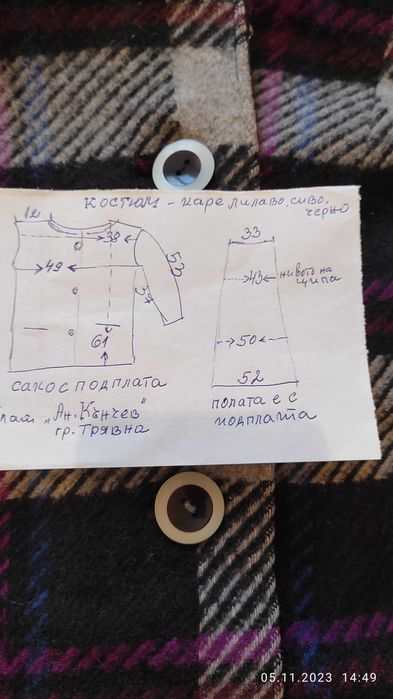 костюм - каре лилаво, сиво,
черно
12
39
49
53
37
61
сако с подплата
"Ан. Кънчев"
гр. Трявна
33
43 нивото на
ципа
50
52
полата е с
подплата
05.11.2023 14:49